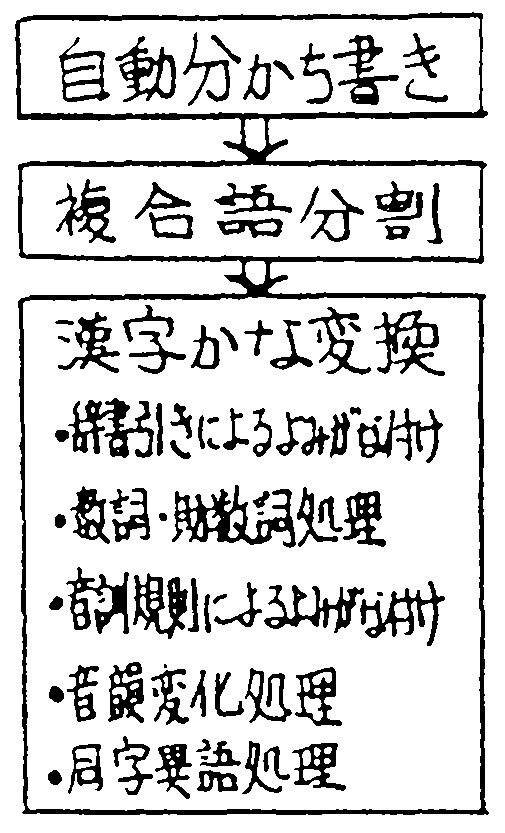 自動分かち書き
複合語分割
漢字かな変換
・辞書引きによるよみがな付け
・数詞・助数詞処理
・音訓規則によるよみがな付け
・音韻変化処理
・同字異語処理